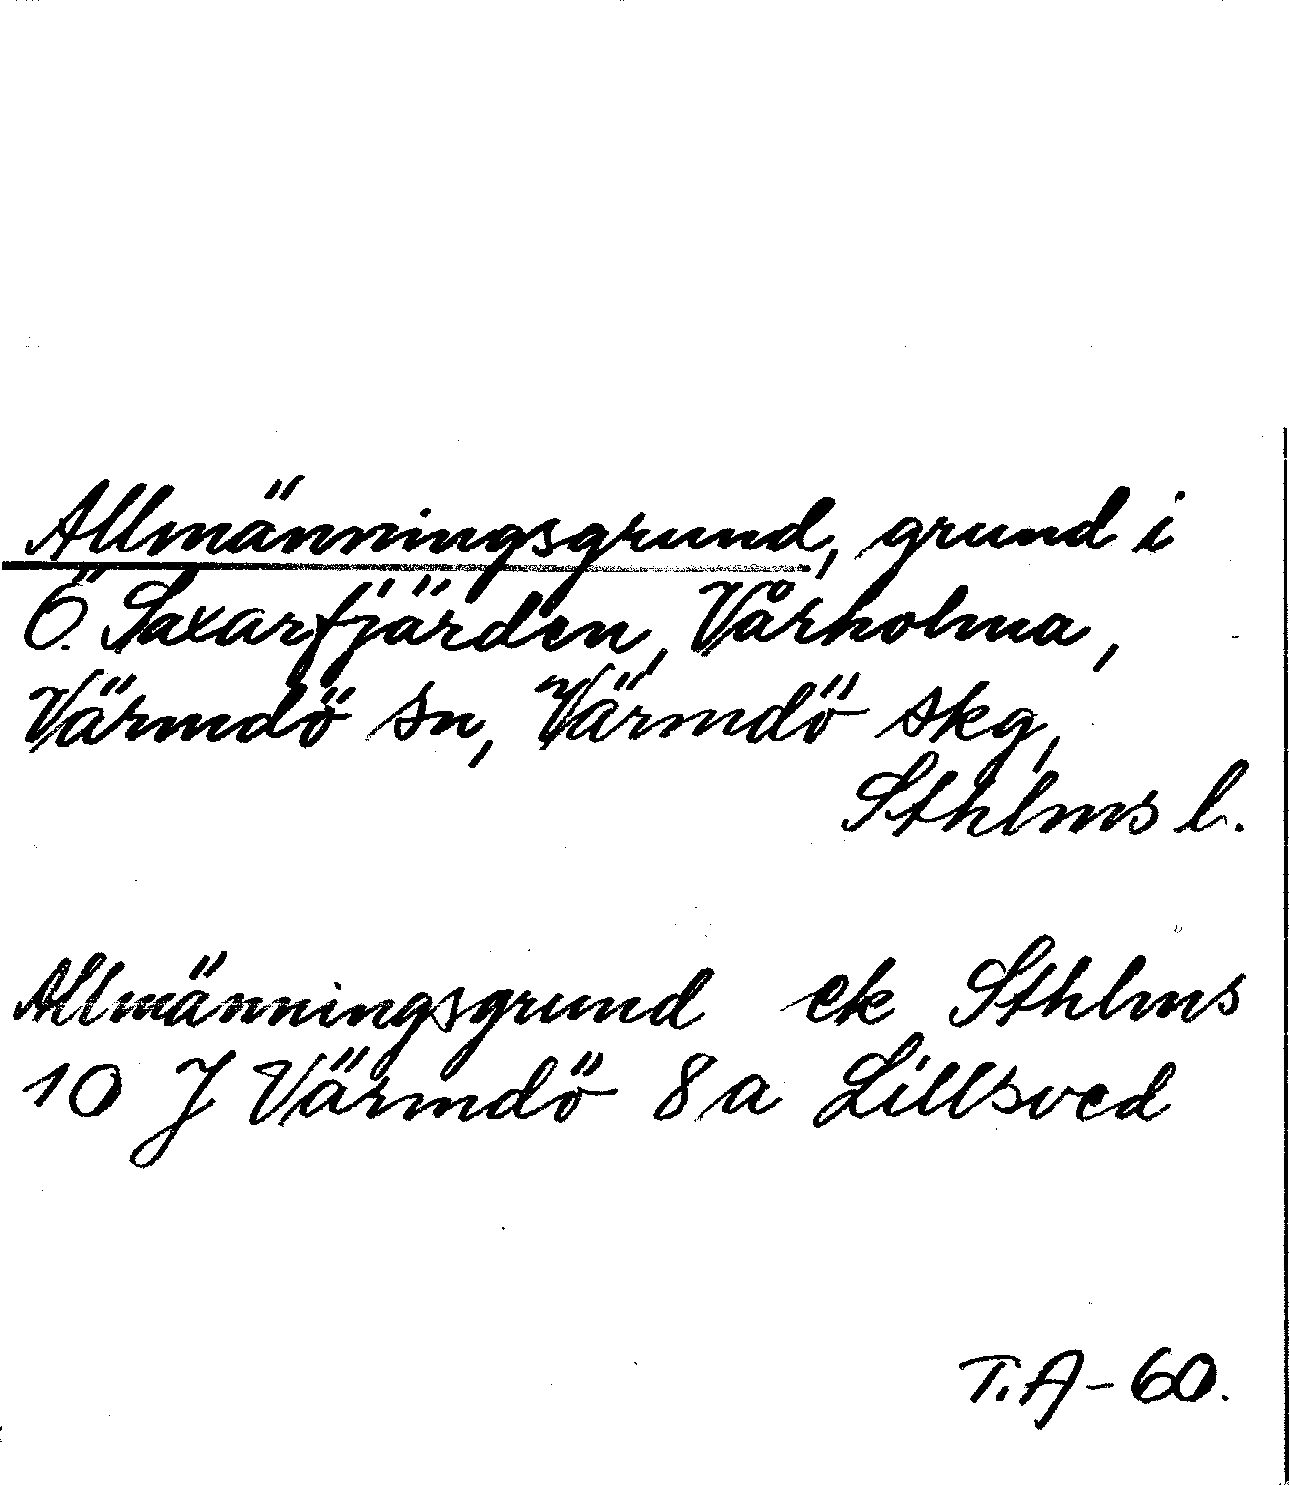 Allmänningsgrund, grund i
Ö. Saxarfjärden, Vårholma,
Värmdö sn, Värmdö skg,
Sthlms l.
Allmänningsgrund ek Sthlms
10 J Värmdö 8a Lillsved
T.A-60.